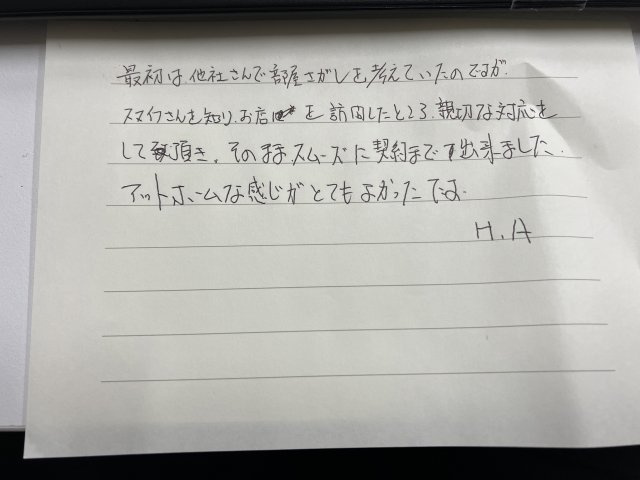 最初は、他社さんで部屋さがしを考えていたのですが、
スマイフさんを知り、お店を訪問したところ、親切な対応を
して頂き、そのままスムーズに契約まで出来ました。
アットホームな感じがとてもよかったです。
H.A